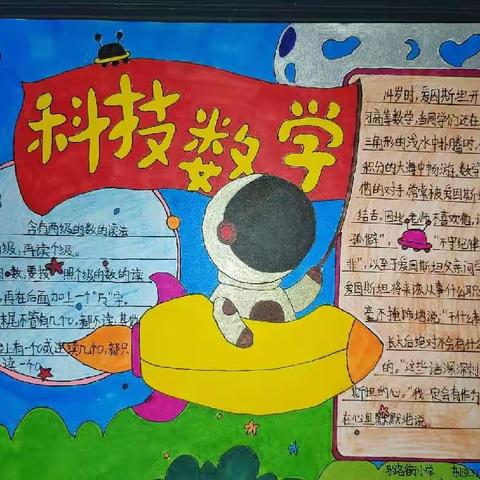 科技数学
含有两级的数的读法
级,再读个级。
数,要按 照个级的数的读
再在后面加上一个"万"字。
末尾不管有几个0,都不读,其他
上有一个0或连续几个0,都只
读一个0。
14岁时,爱因斯坦开
习高等数学,当同学们还在
三角形的浅水中扑腾时,
积分的大海中畅游,数学
他的对手,常常被爱因斯
结舌。因此,老师不喜欢他,
孤僻",
"不守纪律
非",以至于爱因斯坦父亲问学
爱因斯坦将来该从事什么职
毫不掩饰地说:"干什么
长大后绝对不会有什么
的。"这些话深深刺
斯坦的心。"我一定会有
在心里默默地说。
马路街小学